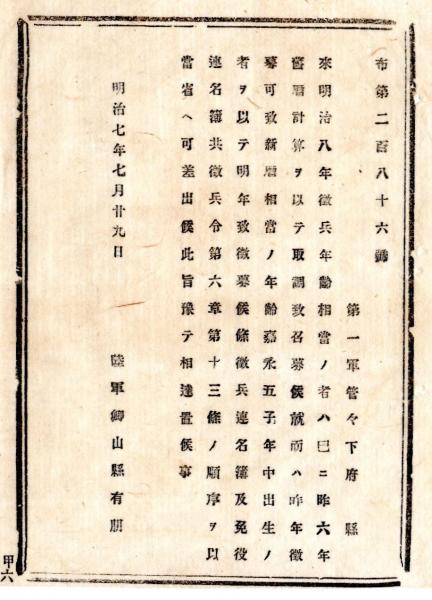 布第二百八十六號
第一軍管々下府縣
來明治八年徵兵年齡相當ノ者ハ巳ニ昨六年
舊曆計算ヲ以テ取調致召募候就而ハ昨年徵
募可致新曆相當ノ年齡嘉永五子年中出生ノ
者ヲ以テ明年致徵募候條徵兵連名簿及免役
連名簿共徵兵令第六章第十三條ノ順序ヲ以
當省ヘ可差出候此旨豫テ相達置候事
明治七年七月廿九日
陸軍卿山縣有朋
甲六